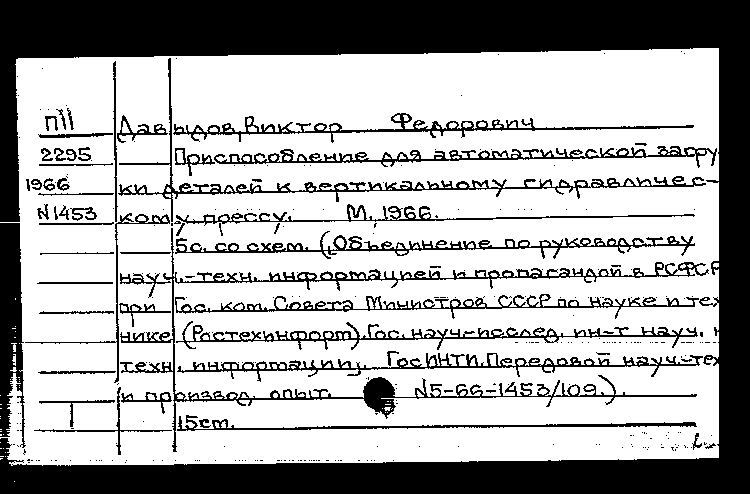 П11 Давыдов, Виктор Федорович
2295 Приспособление для автоматической загру
1966 ки деталей к вертикальному гидравличес-
N1453 кому прессу. М., 1966.
5с. со схем. (Объединение по руководству
науч.-техн. информацией и пропагандой в РСФСР
при Гос. ком. Совета Министров СССР по науке и тех
нике (Ростехинформ). Гос. науч.-исслед. ин-т науч. и
техн. информации, ГосИНТИ. Передовой науч.-тех
и производ. опыт. N5-66-1453/109.).
1 15см.